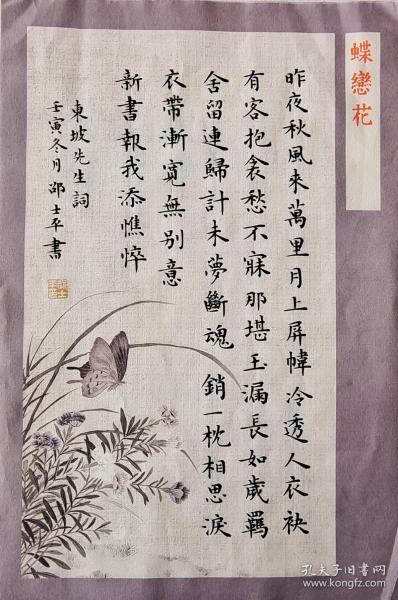 蝶戀花
昨夜秋風來萬里月上屏幃冷透人衣袂
有客抱衾愁不寐那堪玉漏長如歲羈
舍留連歸計未夢斷魂 銷一枕相思淚
衣帶漸寬無別意
新書報我添憔悴
東坡先生詞
壬寅冬月邵士平書
孔夫子旧书网
www.kongfz.com